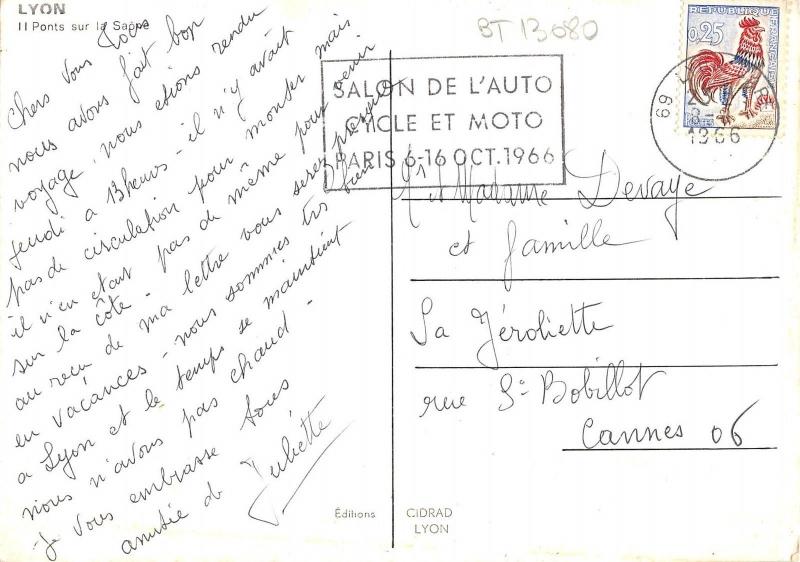 LYON
11 Ponts sur la Saône
Chers vous Tous
nous avons fait bon
voyage, nous etions rendu
jeudi a 13 heures - il n'y avait
pas de circulation pour monter mais
il n'en etait pas de même pour venir
sur la côte - vous serez presque
au reçu de ma lettre
en vacances - nous sommes très bien
a Lyon et le temps se maintient
nous n'avons pas chaud -
Je vous embrasse tous
amitiée de Juliette
Éditions CIDRAD
LYON
BT 13080
SALON DE L'AUTO
CYCLE ET MOTO
PARIS 6-16 OCT. 1966
REPUBLIQUE FRANÇAISE
0,25
69
1966
Mr et Madame Devaye
et famille
La Jéroliette
rue St Bobillot
Cannes 06